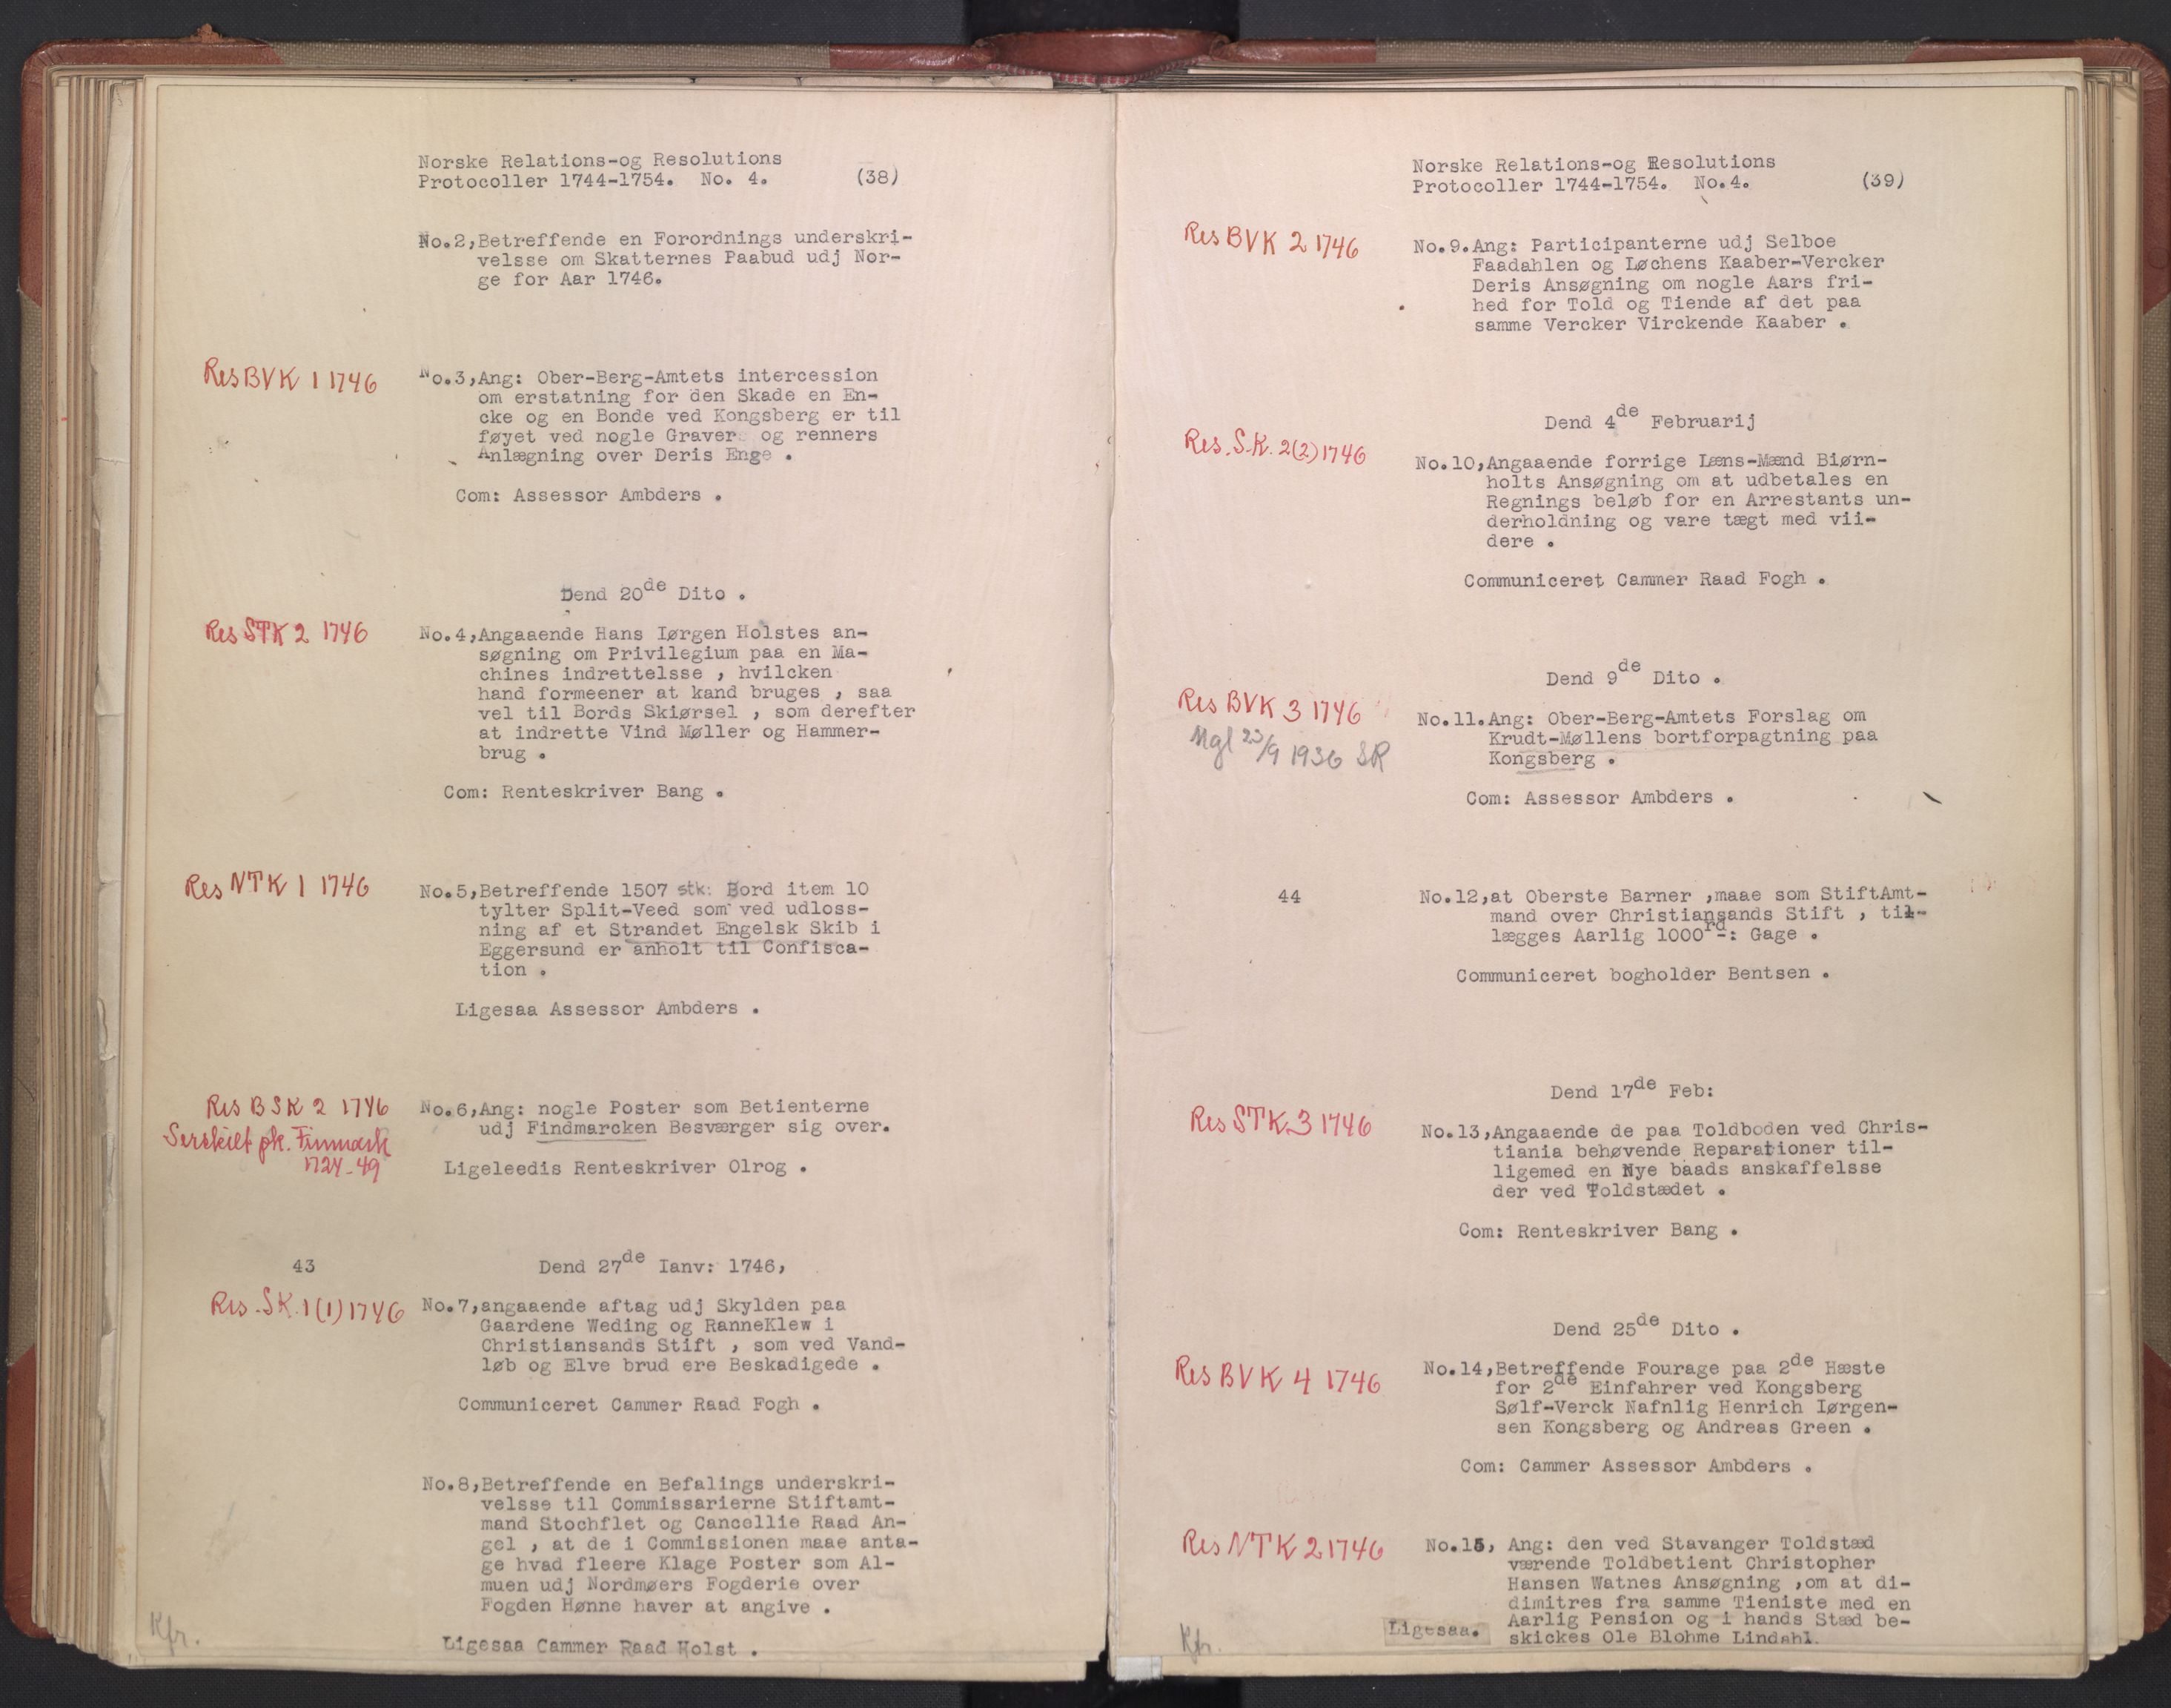 Norske Relations-og Resolutions
Protocoller 1744-1754. No. 4. (38)
No.2,Betreffende en Forordnings underskri-
velsse om Skatternes Paabud udj Nor-
ge for Aar 1746.
Res BVK 1 1746
No.3,Ang: Ober-Berg-Amtets intercession
om erstatning for den Skade en En-
cke og en Bonde ved Kongsberg er til
føyet ved nogle Graver og renners
Anlægning over Deris Enge .
Com: Assessor Ambders .
Dend 20de Dito .
Res STK 2 1746
No.4,Angaaende Hans Iørgen Holstes an-
søgning om Privilegium paa en Ma-
chines indrettelsse , hvilcken
hand formeener at kand bruges , saa
vel til Bords Skiørsel , som derefter
at indrette Vind Møller og Hammer-
brug .
Com: Renteskriver Bang .
Res NTK 1 1746
No.5,Betreffende 1507 stk: Bord item 10
tylter Split-Veed som ved udloss-
ning af et Strandet Engelsk Skib i
Eggersund er anholt til Confisca-
tion .
Ligesaa Assessor Ambders .
Res BSK 2 1746
Serskilt pk. Finmark
1724-49
No.6,Ang: nogle Poster som Betienterne
udj Findmarcken Besværger sig over.
Ligeleedis Renteskriver Olrog .
43
Dend 27de Ianv: 1746,
Res. SK. 1(1) 1746
No.7,angaaende aftag udj Skylden paa
Gaardene Weding og RanneKlew i
Christiansands Stift , som ved Vand-
løb og Elve brud ere Beskadigede .
Communiceret Cammer Raad Fogh .
No.8,Betreffende en Befalings underskri-
velsse til Commissarierne Stiftamt-
mand Stochflet og Cancellie Raad An-
gel , at de i Commissionen maae anta-
ge hvad fleere Klage Poster som Al-
muen udj Nordmøers Fogderie over
Fogden Hønne haver at angive .
Ligesaa Cammer Raad Holst .
Kfr.
Norske Relations-og Resolutions
Protocoller 1744-1754. No.4. (39)
Res BVK 2 1746
No.9.Ang: Participanterne udj Selboe
Faadahlen og Løchens Kaaber-Vercker
Deris Ansøgning om nogle Aars fri-
hed for Told og Tiende af det paa
samme Vercker Virckende Kaaber .
Dend 4de Februarij
Res. S.K. 2(2) 1746
No.10,Angaaende forrige Læns-Mænd Biørn-
holts Ansøgning om at udbetales en
Regnings beløb for en Arrestants un-
derholdning og vare tægt med vii-
dere .
Communiceret Cammer Raad Fogh .
Dend 9de Dito .
Res BVK 3 1746
Mgl 23/9 1936 SR
No.11.Ang: Ober-Berg-Amtets Forslag om
Krudt-Møllens bortforpagtning paa
Kongsberg .
Com: Assessor Ambders .
44
No.12,at Oberste Barner ,maae som StiftAmt-
mand over Christiansands Stift , til-
lægges Aarlig 1000rd-: Gage .
Communiceret bogholder Bentsen .
Dend 17de Feb:
Res STK 3 1746
No.13,Angaaende de paa Toldboden ved Chris-
tiania behøvende Reparationer til-
ligemed en Nye baads anskaffelsse
der ved Toldstædet .
Com: Renteskriver Bang .
Dend 25de Dito .
Res BVK 4 1746
No.14,Betreffende Fourage paa 2de Hæste
for 2de Einfahrer ved Kongsberg
Sølf-Verck Nafnlig Henrich Iørgen-
sen Kongsberg og Andreas Green .
Com: Cammer Assessor Ambders .
Res NTK 2 1746
No.15, Ang: den ved Stavanger Toldstæd
værende Toldbetient Christopher
Hansen Watnes Ansøgning ,om at di-
dimitres fra samme Tieniste med en
Aarlig Pension og i hands Stæd be-
skickes Ole Blohme Lindahl.
Ligesaa.
Kfr.